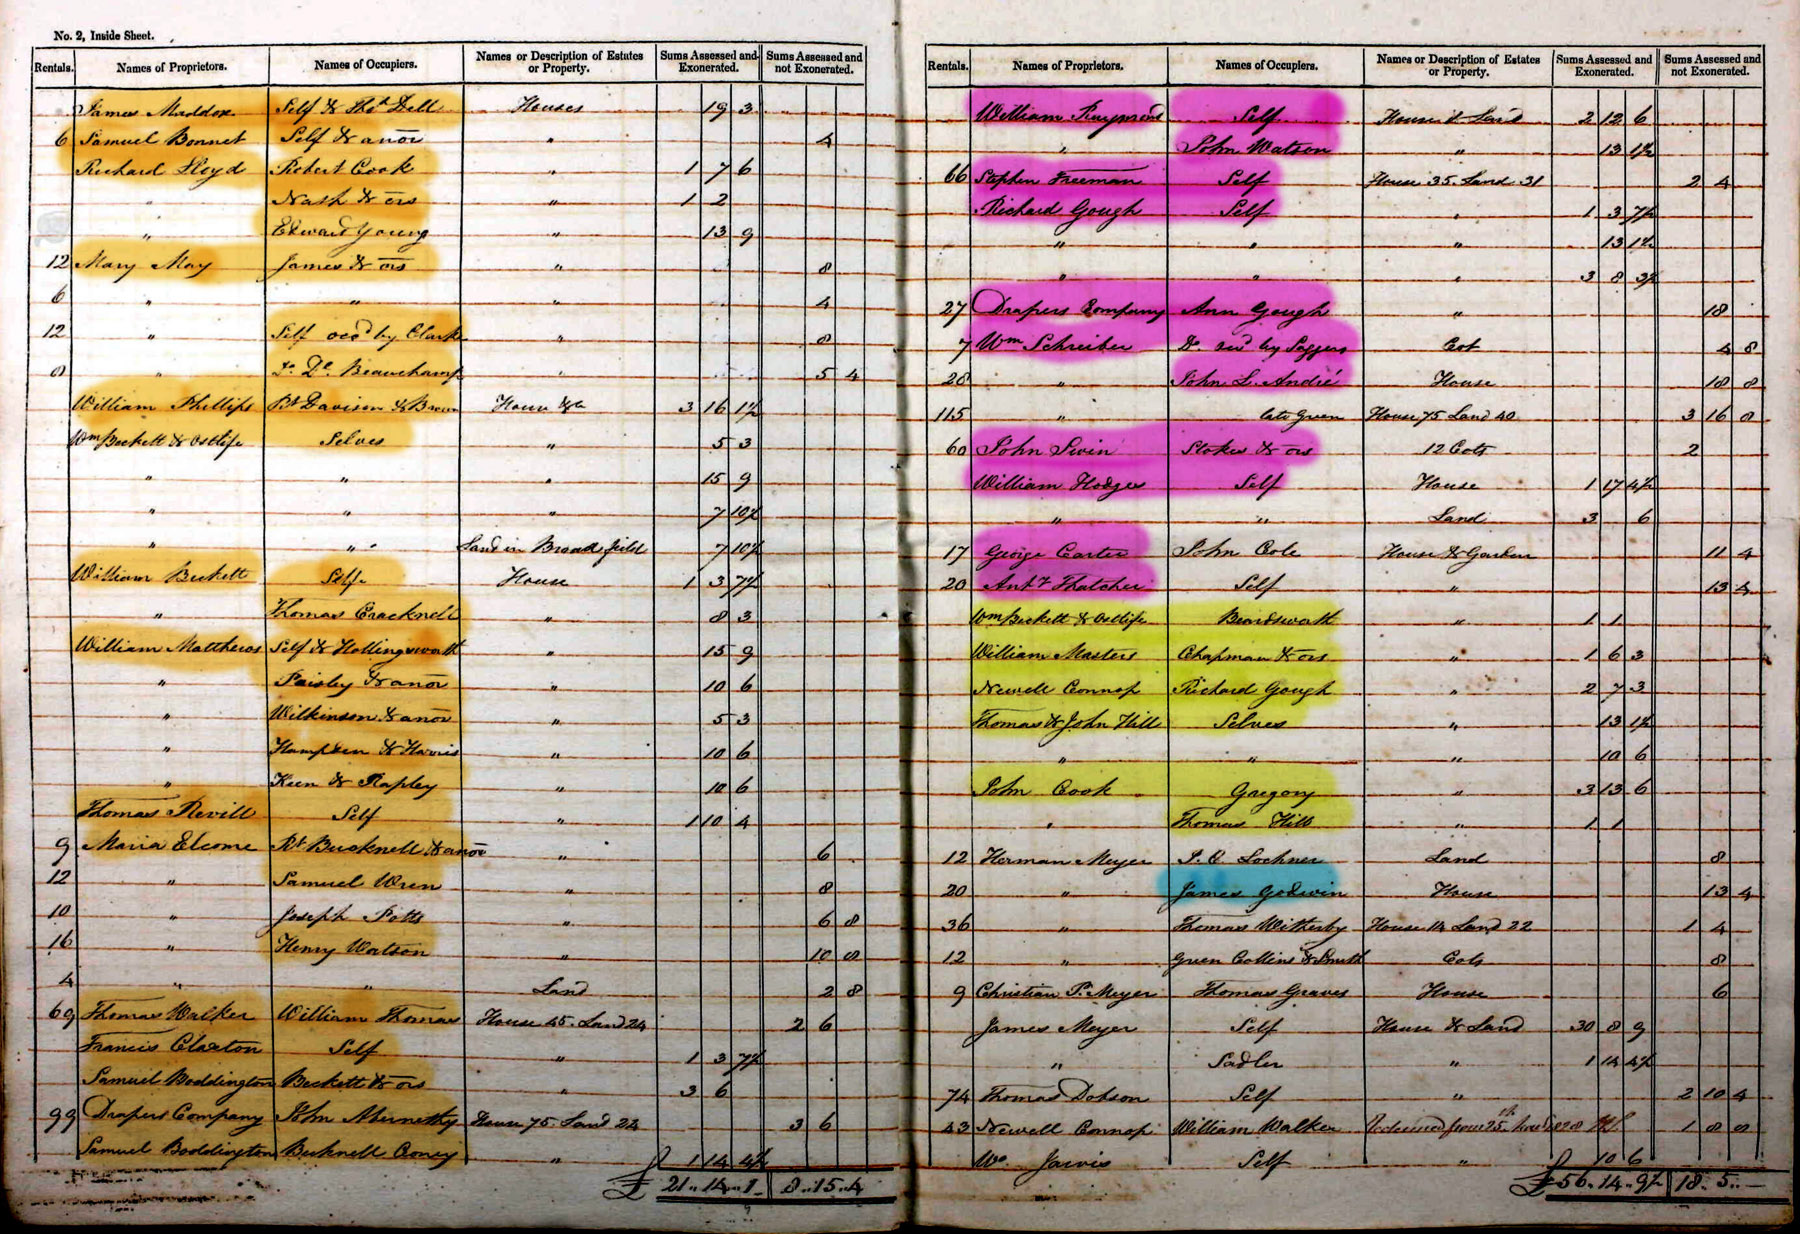 No. 2, Inside Sheet.
Rentals. Names of Proprietors. Names of Occupiers. Names or Description of Estates or Property. Sums Assessed and Exonerated. Sums Assessed and not Exonerated.
James Maddox Self & Thos Dell Houses 19 3
6 Samuel Bonnet Self & anor " 4
Richard Lloyd Robert Cook " 1 7 6
" Nash & ors " 1 2
" Edward Young " 13 9
12 Mary May James & ors " 8
6 " " " 4
12 " Self occd by Clark " 8
8 " Do Do Beauchamp " 5 4
William Phillips Rt Davison & Brown House &c 3 16 1½
Wm Beckett & Ostlife Selves " 5 3
" " " 15 9
" " " 7 10½
" " Land in Broad field 7 10½
William Beckett Self House 1 3 7½
" Thomas Cracknell " 8 3
William Matthews Self & Hollingsworth " 15 9
" Paisley & anor " 10 6
" Wilkinson & anor " 5 3
" Hampden & Harris " 10 6
" Keen & Rapley " 10 6
Thomas Revill Self " 1 10 4
9 Maria Elcome Rt Bucknell & anor " 6
12 " Samuel Wren " 8
10 " Joseph Potts " 6 8
16 " Henry Watson " 10 8
4 " " Land 2 8
69 Thomas Walker William Thomas House 45. Land 24 2 6
Francis Claxton Self " 1 3 7½
Samuel Boddington Beckett & ors " 3 6
99 Drapers Company John Abernethy House 75. Land 24 3 6
Samuel Boddington Bucknell Coney " 1 14 4½
£ 21 .. 14 .. 1 8 .. 15 .. 4
Rentals. Names of Proprietors. Names of Occupiers. Names or Description of Estates or Property. Sums Assessed and Exonerated. Sums Assessed and not Exonerated.
William Raymond Self House & Land 2 12 6
" John Watson " 13 1½
66 Stephen Freeman Self House 35. Land 31 2 4
Richard Gough Self " 1 3 7½
" " " 13 1½
" " " 3 8 3½
27 Drapers Company Ann Gough " 18
7 Wm Schreiber Do by Saggers Cot 4 8
28 " John L. André House 18 8
115 " late Green House 75 Land 40 3 16 8
60 John Swin Stokes & ors 12 Cots 2
William Hodges Self House 1 17 4½
" " Land 3 6
17 George Carter John Cole House & Garden 11 4
20 Anty Thatcher Self " 13 4
Wm Beckett & Ostlife Beardsworth " 1 1
William Masters Chapman & ors " 1 6 3
Newell Connop Richard Gough " 2 7 3
Thomas & John Hill Selves " 13 1½
" " " 10 6
John Cook Gregory " 3 13 6
" Thomas Hill " 1 1
12 Herman Meyer J. C. Lochner Land 8
20 " James Godwin House 13 4
36 " Thomas Witherby House 14 Land 22 1 4
12 " Green Collins & Smith Cots 8
9 Christian P. Meyer Thomas Graves House 6
James Meyer Self House & Land 30 8 9
" Sadler " 1 14 4½
74 Thomas Dobson Self " 2 10 4
43 Newell Connop William Walker Redeemed from 25th 1828 1 8 8
Wm Jarvis Self " 10 6
£ 56 .. 14 .. 9½ 18 .. 5 .. —